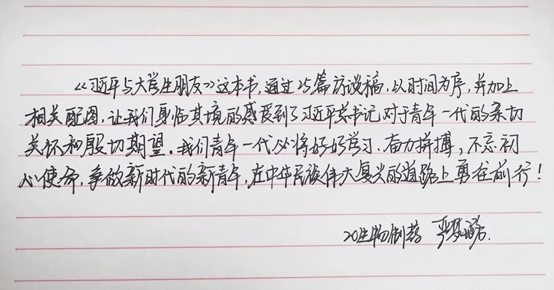 《习近平与大学生朋友》这本书,通过25篇访谈稿,以时间为序,并加上
相关配图,让我们身临其境的感受到了习近平总书记对于青年一代的亲切
关怀和殷切期望。我们青年一代必将好好学习、奋力拼搏,不忘初
心使命,争做新时代的新青年,在中华民族伟大复兴的道路上勇往前行!
20生物制药